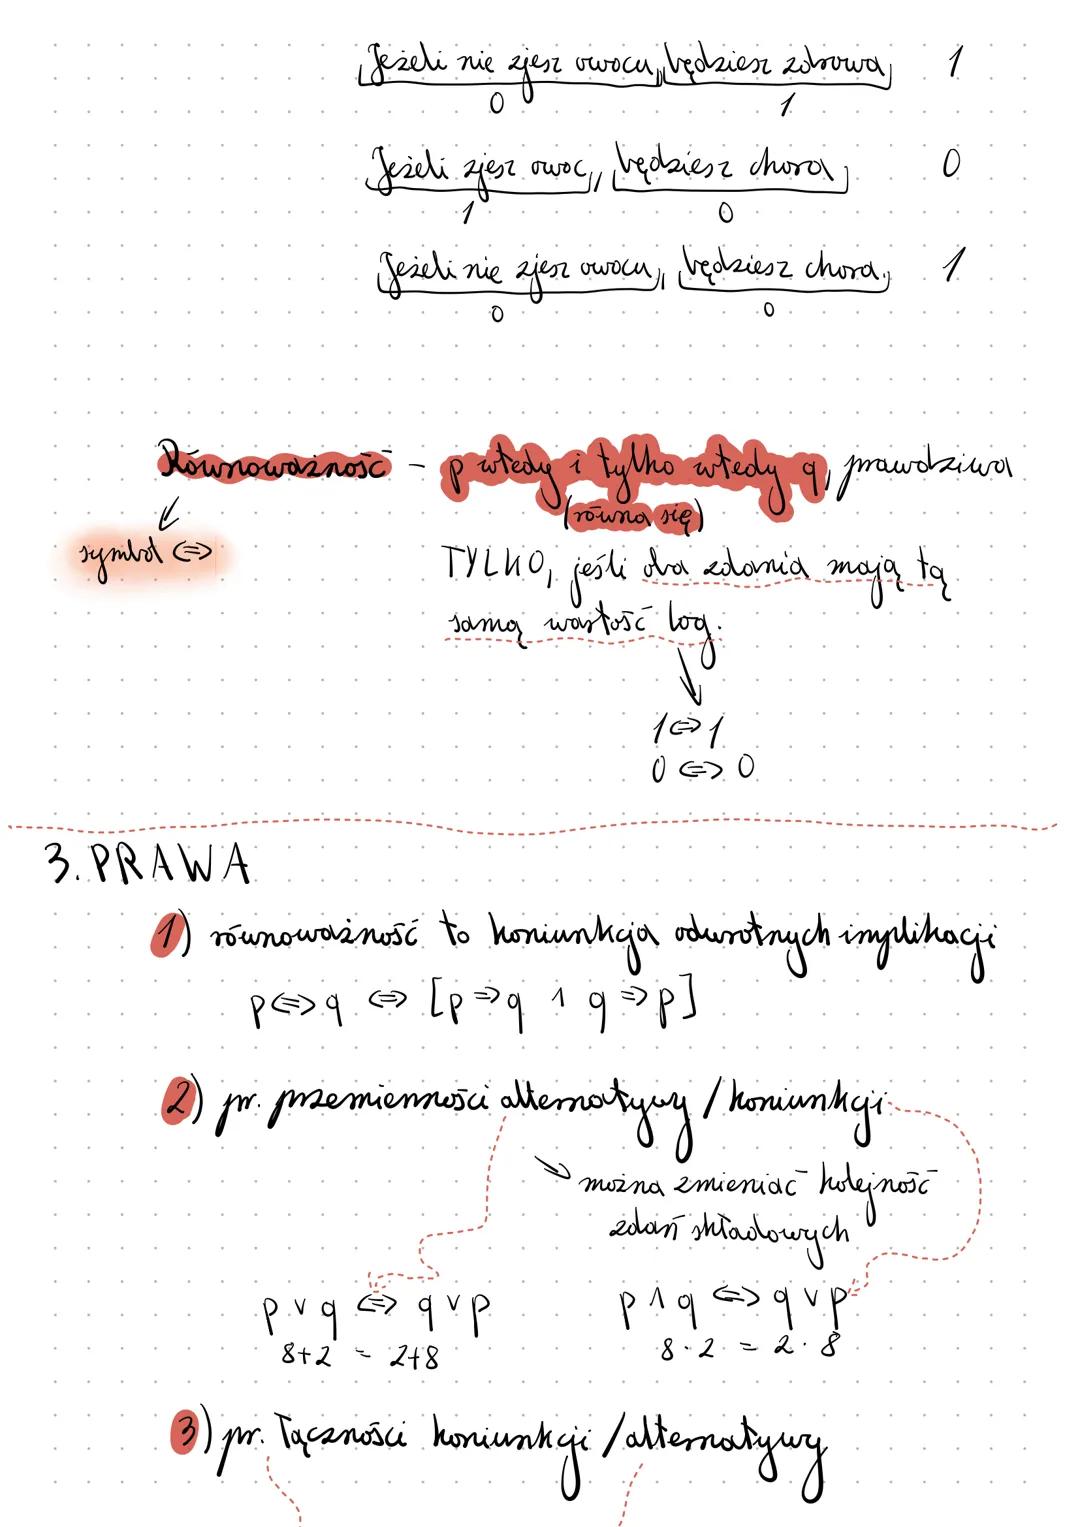 Jeżeli nie zjesz owocu, będziesz zdrowa 1
0 1
Jeżeli zjesz owoc, będziesz chora 0
1 0
Jeżeli nie zjesz owocu, będziesz chora. 1
0 0
Równoważność - p wtedy i tylko wtedy q, prawdziwa
(równa się)
symbol ⇔
TYLKO, jeśli oba zdania mają tą
samą wartość log.
1 ⇔ 1
0 ⇔ 0
3. PRAWA
1) równoważność to koniunkcja odwrotnych implikacji
p ⇔ q ⇔ [p ⇒ q ∧ q ⇒ p]
2) pr. przemienności alternatywy / koniunkcji
można zmieniać kolejność
zdań składowych
p ∨ q ⇔ q ∨ p
8+2 = 2+8
p ∧ q ⇔ q ∨ p
8·2 = 2·8
3) pr. łączności koniunkcji / alternatywy